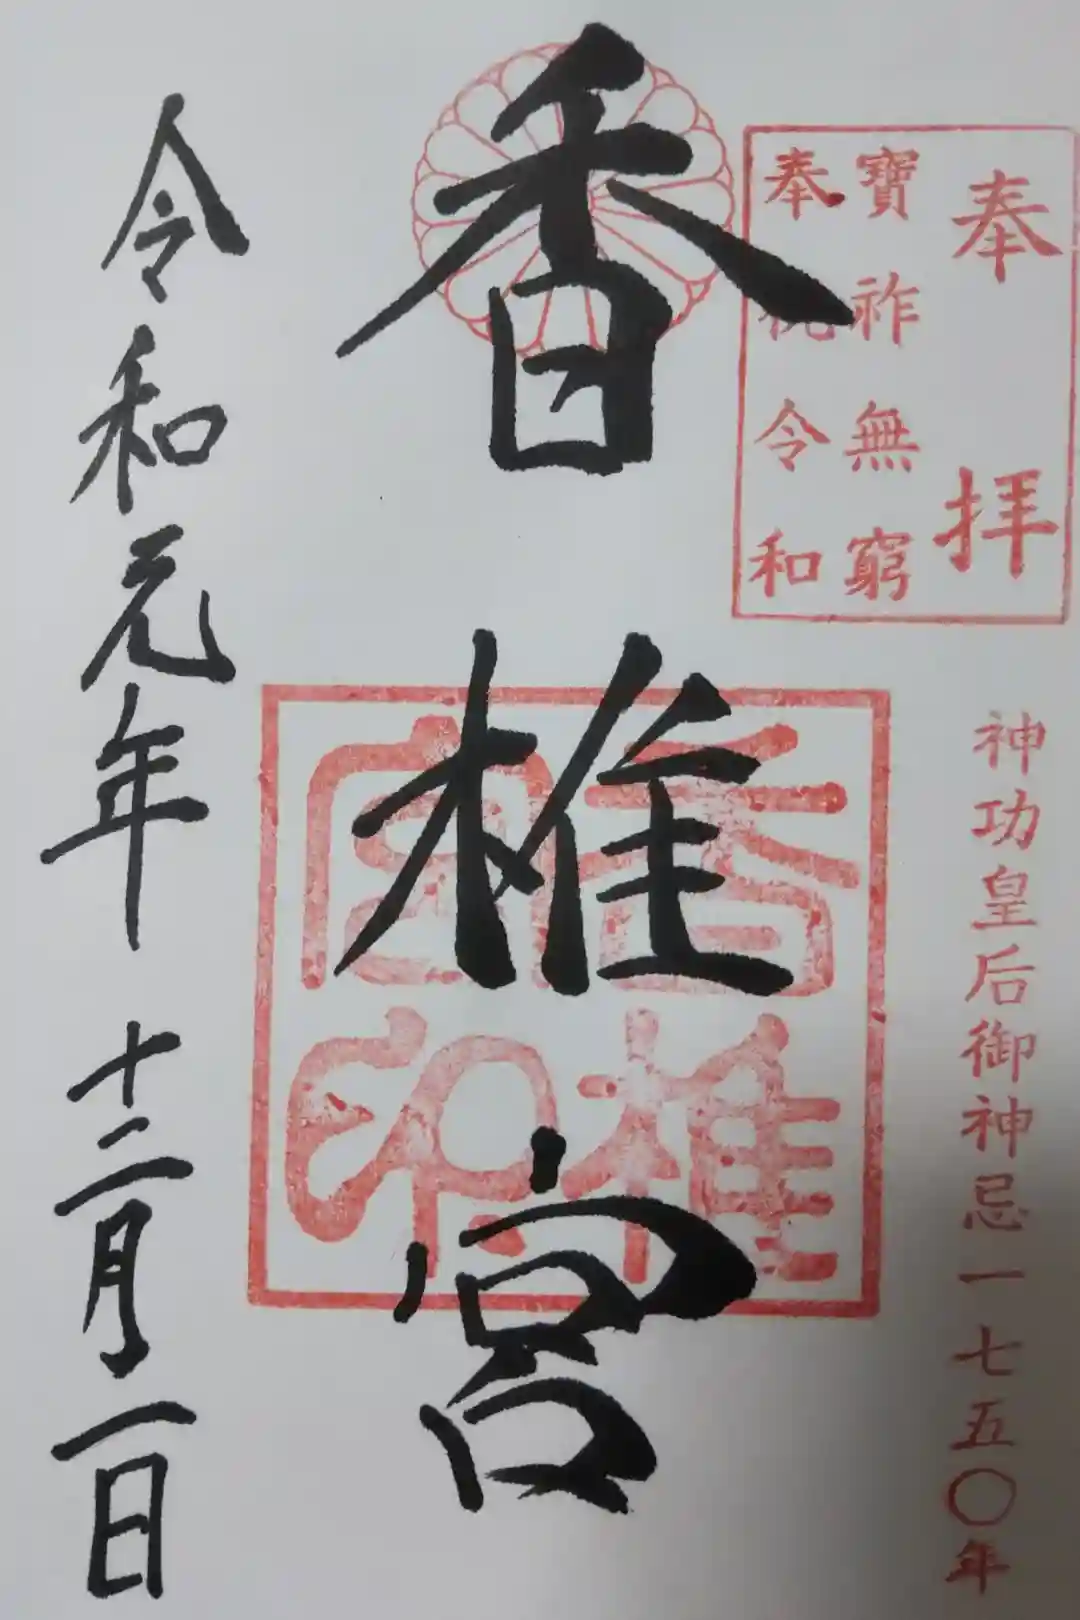 奉拝
寶祚無窮
奉祝令和
神功皇后御神忌一七五〇年
香椎宮
香椎宮印
令和元年十二月一日